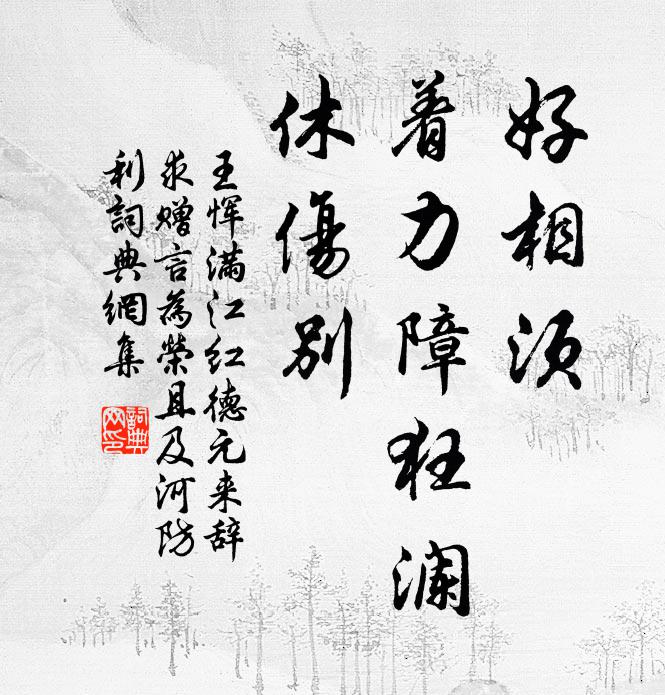 好相须
着力障狂澜
休傷别
王恽满江红德元来辞
求赠言為榮且及河防
利詞典網集
詞典网印